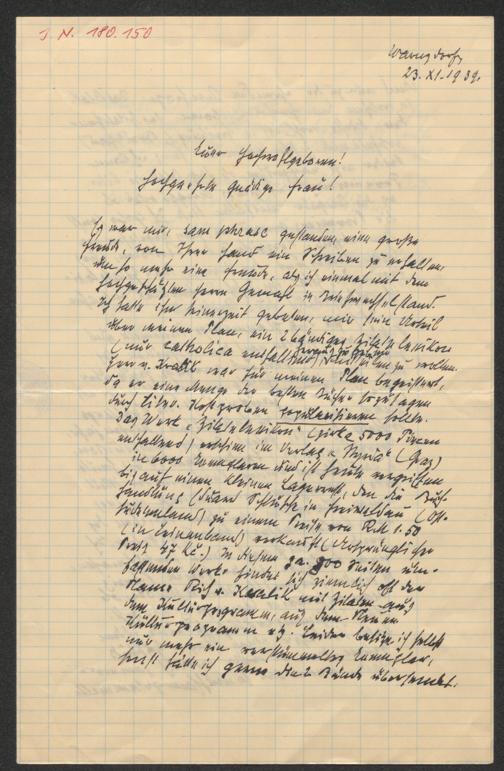 J. N. 180.150
Warnsdorf,
23. XI. 1939.
Euer Hochwohlgeboren!
Hochgeehrte gnädige Frau!
Es war mir, sans phrase gestanden, eine große
Freude, von Ihrer Hand ein Schreiben zu erhalten,
umso mehr eine Freude, als ich einmal mit dem
hochgeschätzten Herrn Gemahl in Briefwechsel stand.
Ich hatte ihn seinerzeit gebeten, mir sein Urteil
über meinen Plan, ein 2bändiges Zitatenlexikon
(nur catholica enthaltend) zu wollen.
Herr v. Kralik war für meinen Plan begeistert,
da er eine Menge der besten Bücher sozusagen
durch liter. Kostproben popularisieren sollte.
Das Werk "Zitatenlexikon" (zirka 5000 Themen
enthaltend) erschien im Verlag "Styria" (Graz)
in 6000 Exemplaren und ist heute vergriffen
bis auf einen kleinen Lagerrest, den die Buch-
handlung in Freiwaldau (Ost-
sudetenland) zu einem Preise von RM 1.50
(in Leinenband) verkauft (Ursprünglicher
Preis 47 Kč.) In diesem ca. 800 Seiten um-
fassenden Werke findet sich ziemlich oft der
Name Rich. v. Kralik mit Zitaten aus
dem Kulturprogramm, aus dem Neuen
Kulturprogramm etz. Leider besitze ich selbst
nur mehr ein verstümmeltes Exemplar,
sonst hätte ich gerne die 2 Bände übersendet.